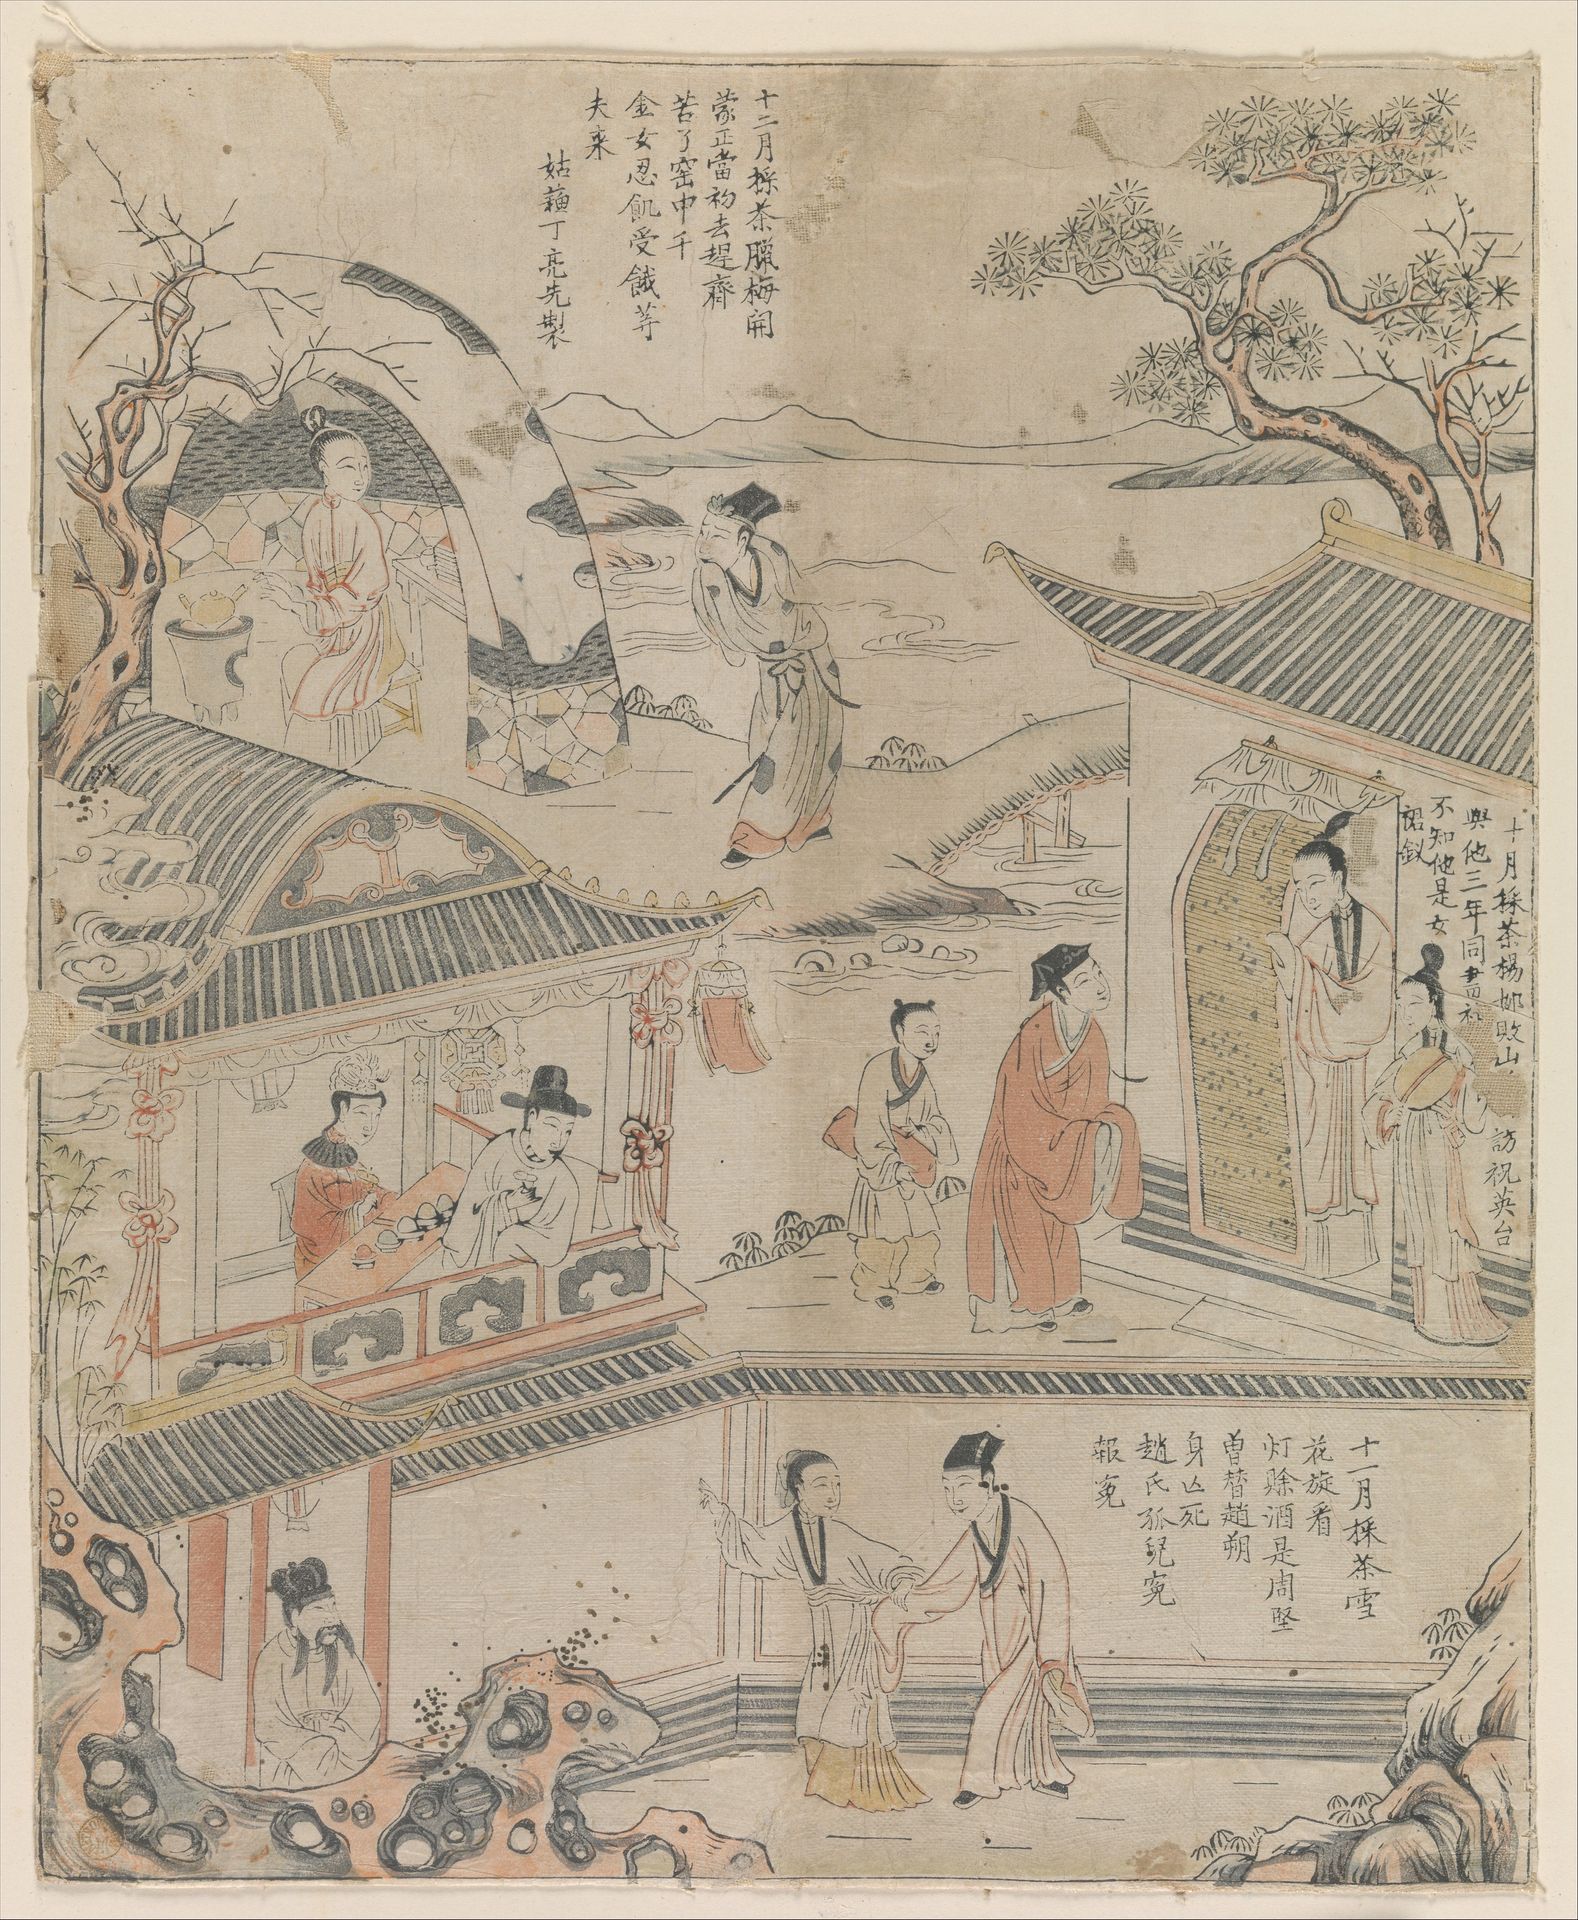 十二月採茶臘梅開
蒙正當初去趕齋
苦了窑中千
金女忍飢受餓等
夫來
姑蘓丁亮先製
十月採茶楊柳敗山
訪祝英台
與他三年同書
不知他是女
裙釵
十一月採茶雪
花旋看
灯賒酒是周堅
曽替趙朔
身亾死
趙氏孤兒寃
報寃